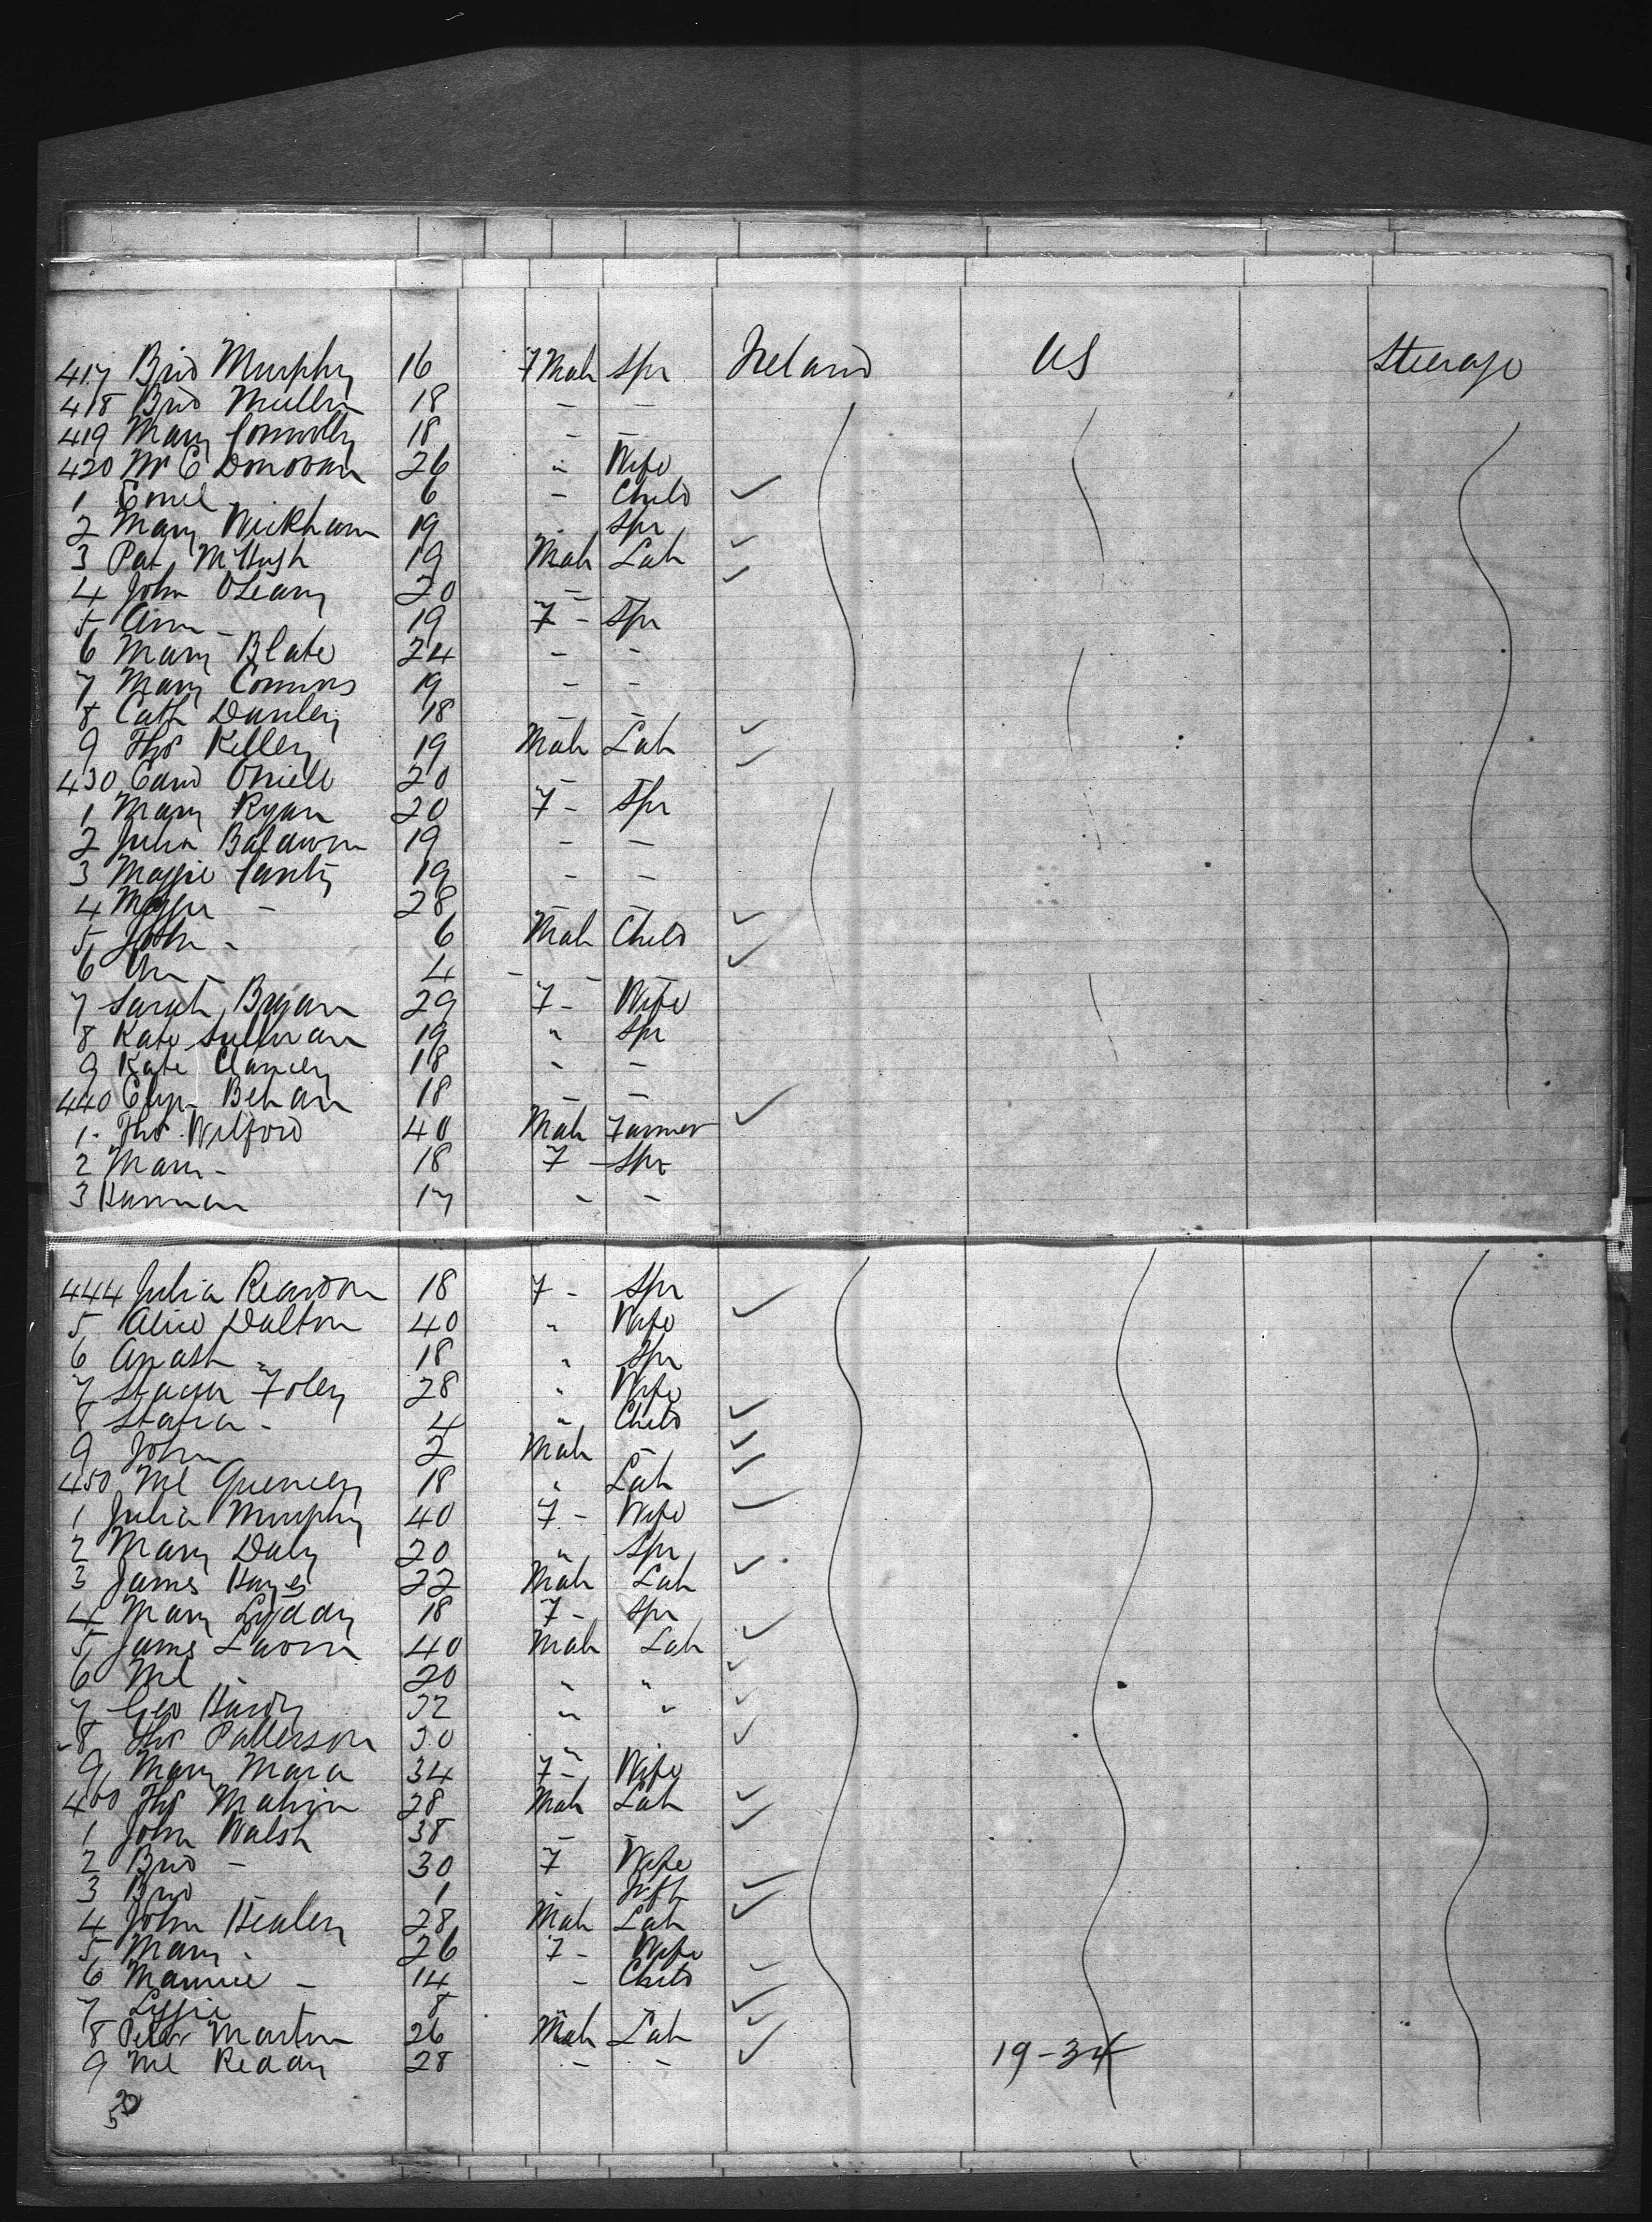 417 Brid Murphy 16 F Mah Spr Ireland US Steerage
418 Brid Mullin 18 - -
419 Mary Connolly 18 - -
420 Mrs E Donovan 26 " Wife
1 6 - Child ✓
2 Mary Wickham 19 Spr
3 Pat McHugh 19 Mah Lab ✓
4 John OLeary 20 - - ✓
5 Ann - 19 F - Spr
6 Mary Blake 24 - -
7 Mary Connors 19 - -
8 Cath Danley 18 - -
9 Thos Kelley 19 Mah Lab ✓
430 Edwd ONeill 20 - ✓
1 Mary Ryan 20 F - Spr
2 Julia Baldwin 19 - -
3 Maggie Canty 19 - -
4 - 28 - -
5 John - 6 Mah Child ✓
6 - 4 - - ✓
7 Sarah Bryan 29 F - Wife
8 Kate Sullivan 19 " Spr
9 Kate Clancey 18 - -
440 Behan 18 - -
1 Thos Wilford 40 Mah Farmer ✓
2 Mary - 18 F - Spr
3 Hannah 17 - -
444 Julia Reardon 18 F - Spr
5 Alice Dalton 40 " Wife ✓
6 Anast " 18 " Spr
7 Foley 28 " Wife
8 Statia - 4 " Child ✓
9 John 2 Mah - ✓
450 Ml 18 " Lab ✓
1 Julia Murphy 40 F - Wife ✓
2 Mary Daly 20 " Spr
3 James Hayes 22 Mah Lab ✓
4 Mary Lyddy 18 F - Spr
5 James 40 Mah Lab ✓
6 Ml - 20 " " ✓
7 Geo Hardy 32 " " ✓
8 Thos Patterson 30 " ✓
9 Mary Mara 34 F - Wife
460 Thos 28 Mah Lab ✓
1 John Walsh 38 - - ✓
2 Brid - 30 F Wife
3 Brid 1 - Inft ✓
4 John Healey 28 Mah Lab ✓
5 Mary - 26 F - Wife
6 Mannie - 14 - Child ✓
7 Lizzie 8 " - ✓
8 Peter Martin 26 Mah Lab ✓
9 Ml Reddy 28 - - ✓ 19-34